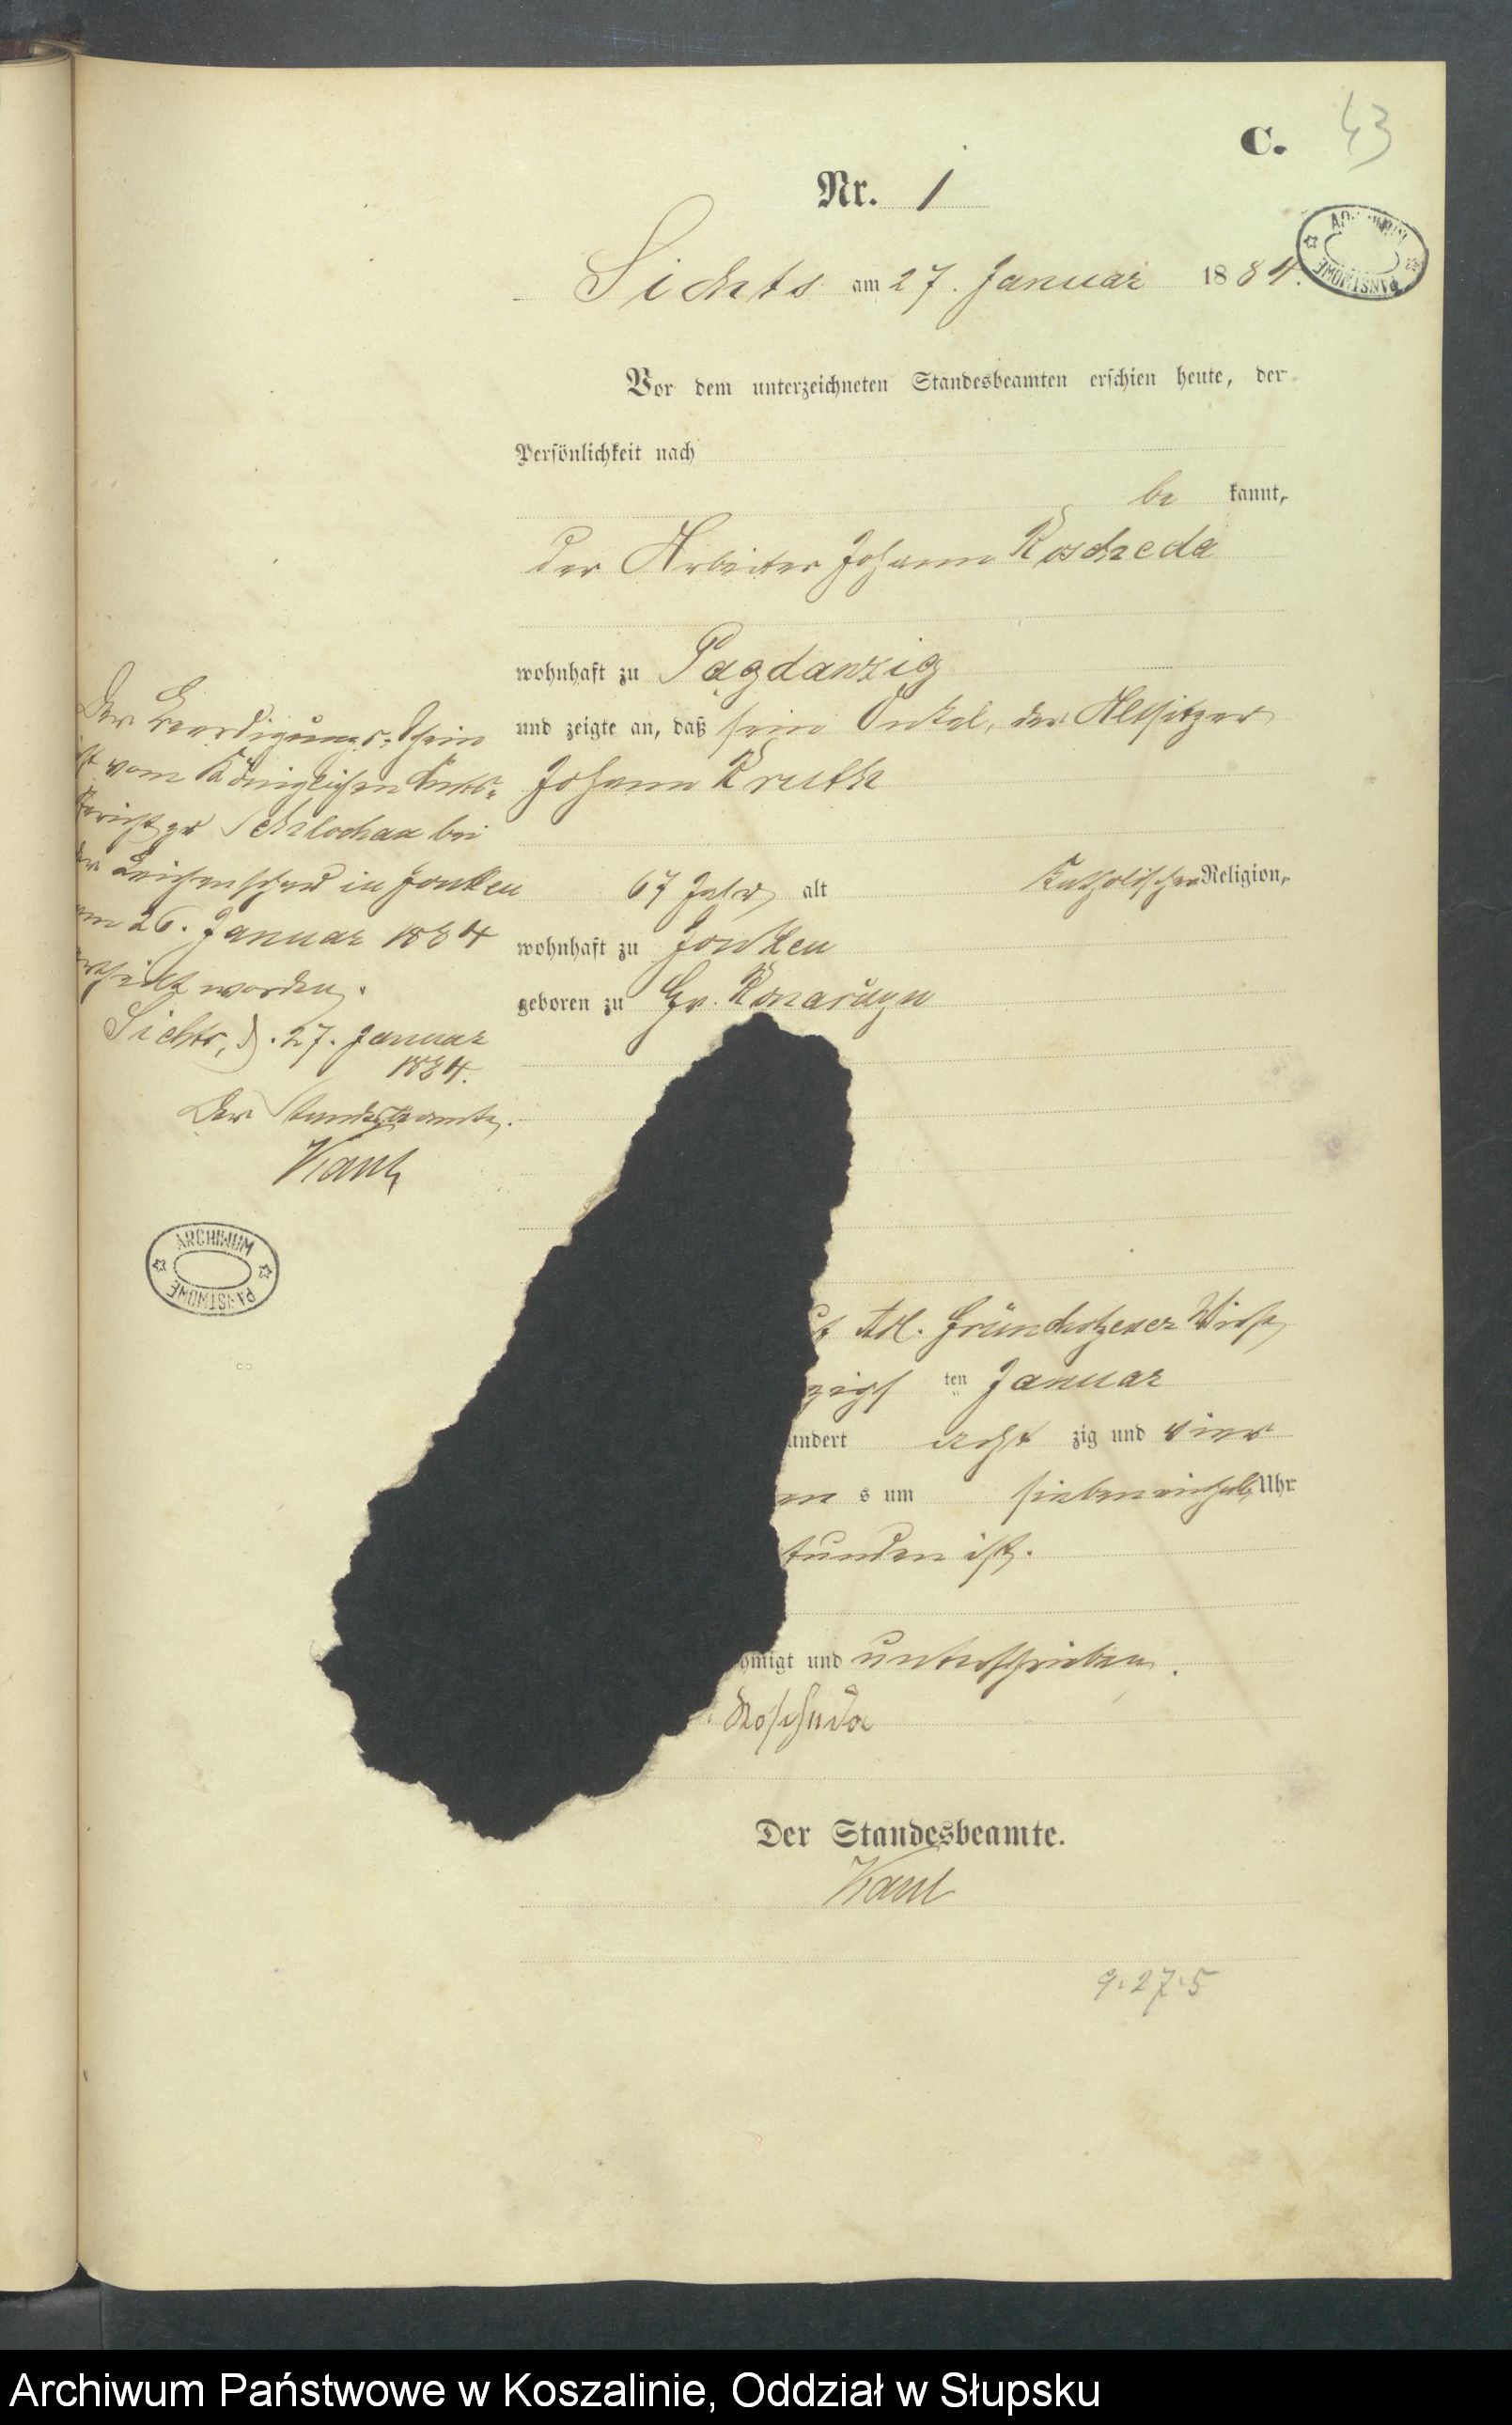 C.
43
Nr. 1
Sichts am 27. Januar 1884.
Vor dem unterzeichneten Standesbeamten erschien heute, der
Persönlichkeit nach
be kannt,
der Arbeiter Johann Roscheda
wohnhaft zu Pagdanzig
und zeigte an, daß sein Onkel, der Altsitzer
Johann Kruth
67 Jahr alt Katholischer Religion,
wohnhaft zu
geboren zu Gr.
Adl.
zigs ten Januar
undert acht zig und vier
en s um sieben einhalb Uhr
funden ist.
hmigt und unterschrieben.
Roscheda
Der Standesbeamte.
9.27.5
Der Beerdigungs-Schein
ist vom Königlichen Amts-
gericht zu Schlochau bei
der Leichenschau in
am 26. Januar 1884
ertheilt worden.
Sichts, d. 27. Januar
1884.
Der Standesbeamte.
ARCHIWUM
PAŃSTWOWE
ARCHIWUM
PAŃSTWOWE
Archiwum Państwowe w Koszalinie, Oddział w Słupsku